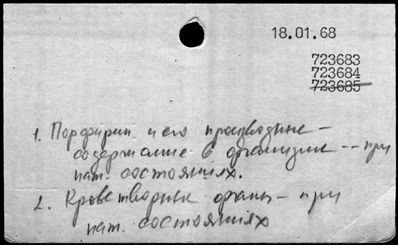 18.01.68
723683
723684
723685
1. Порфирин и его производные –
содержание в организме -- при
пат. состояниях.
2. Кроветворные органы – при
пат. состояниях